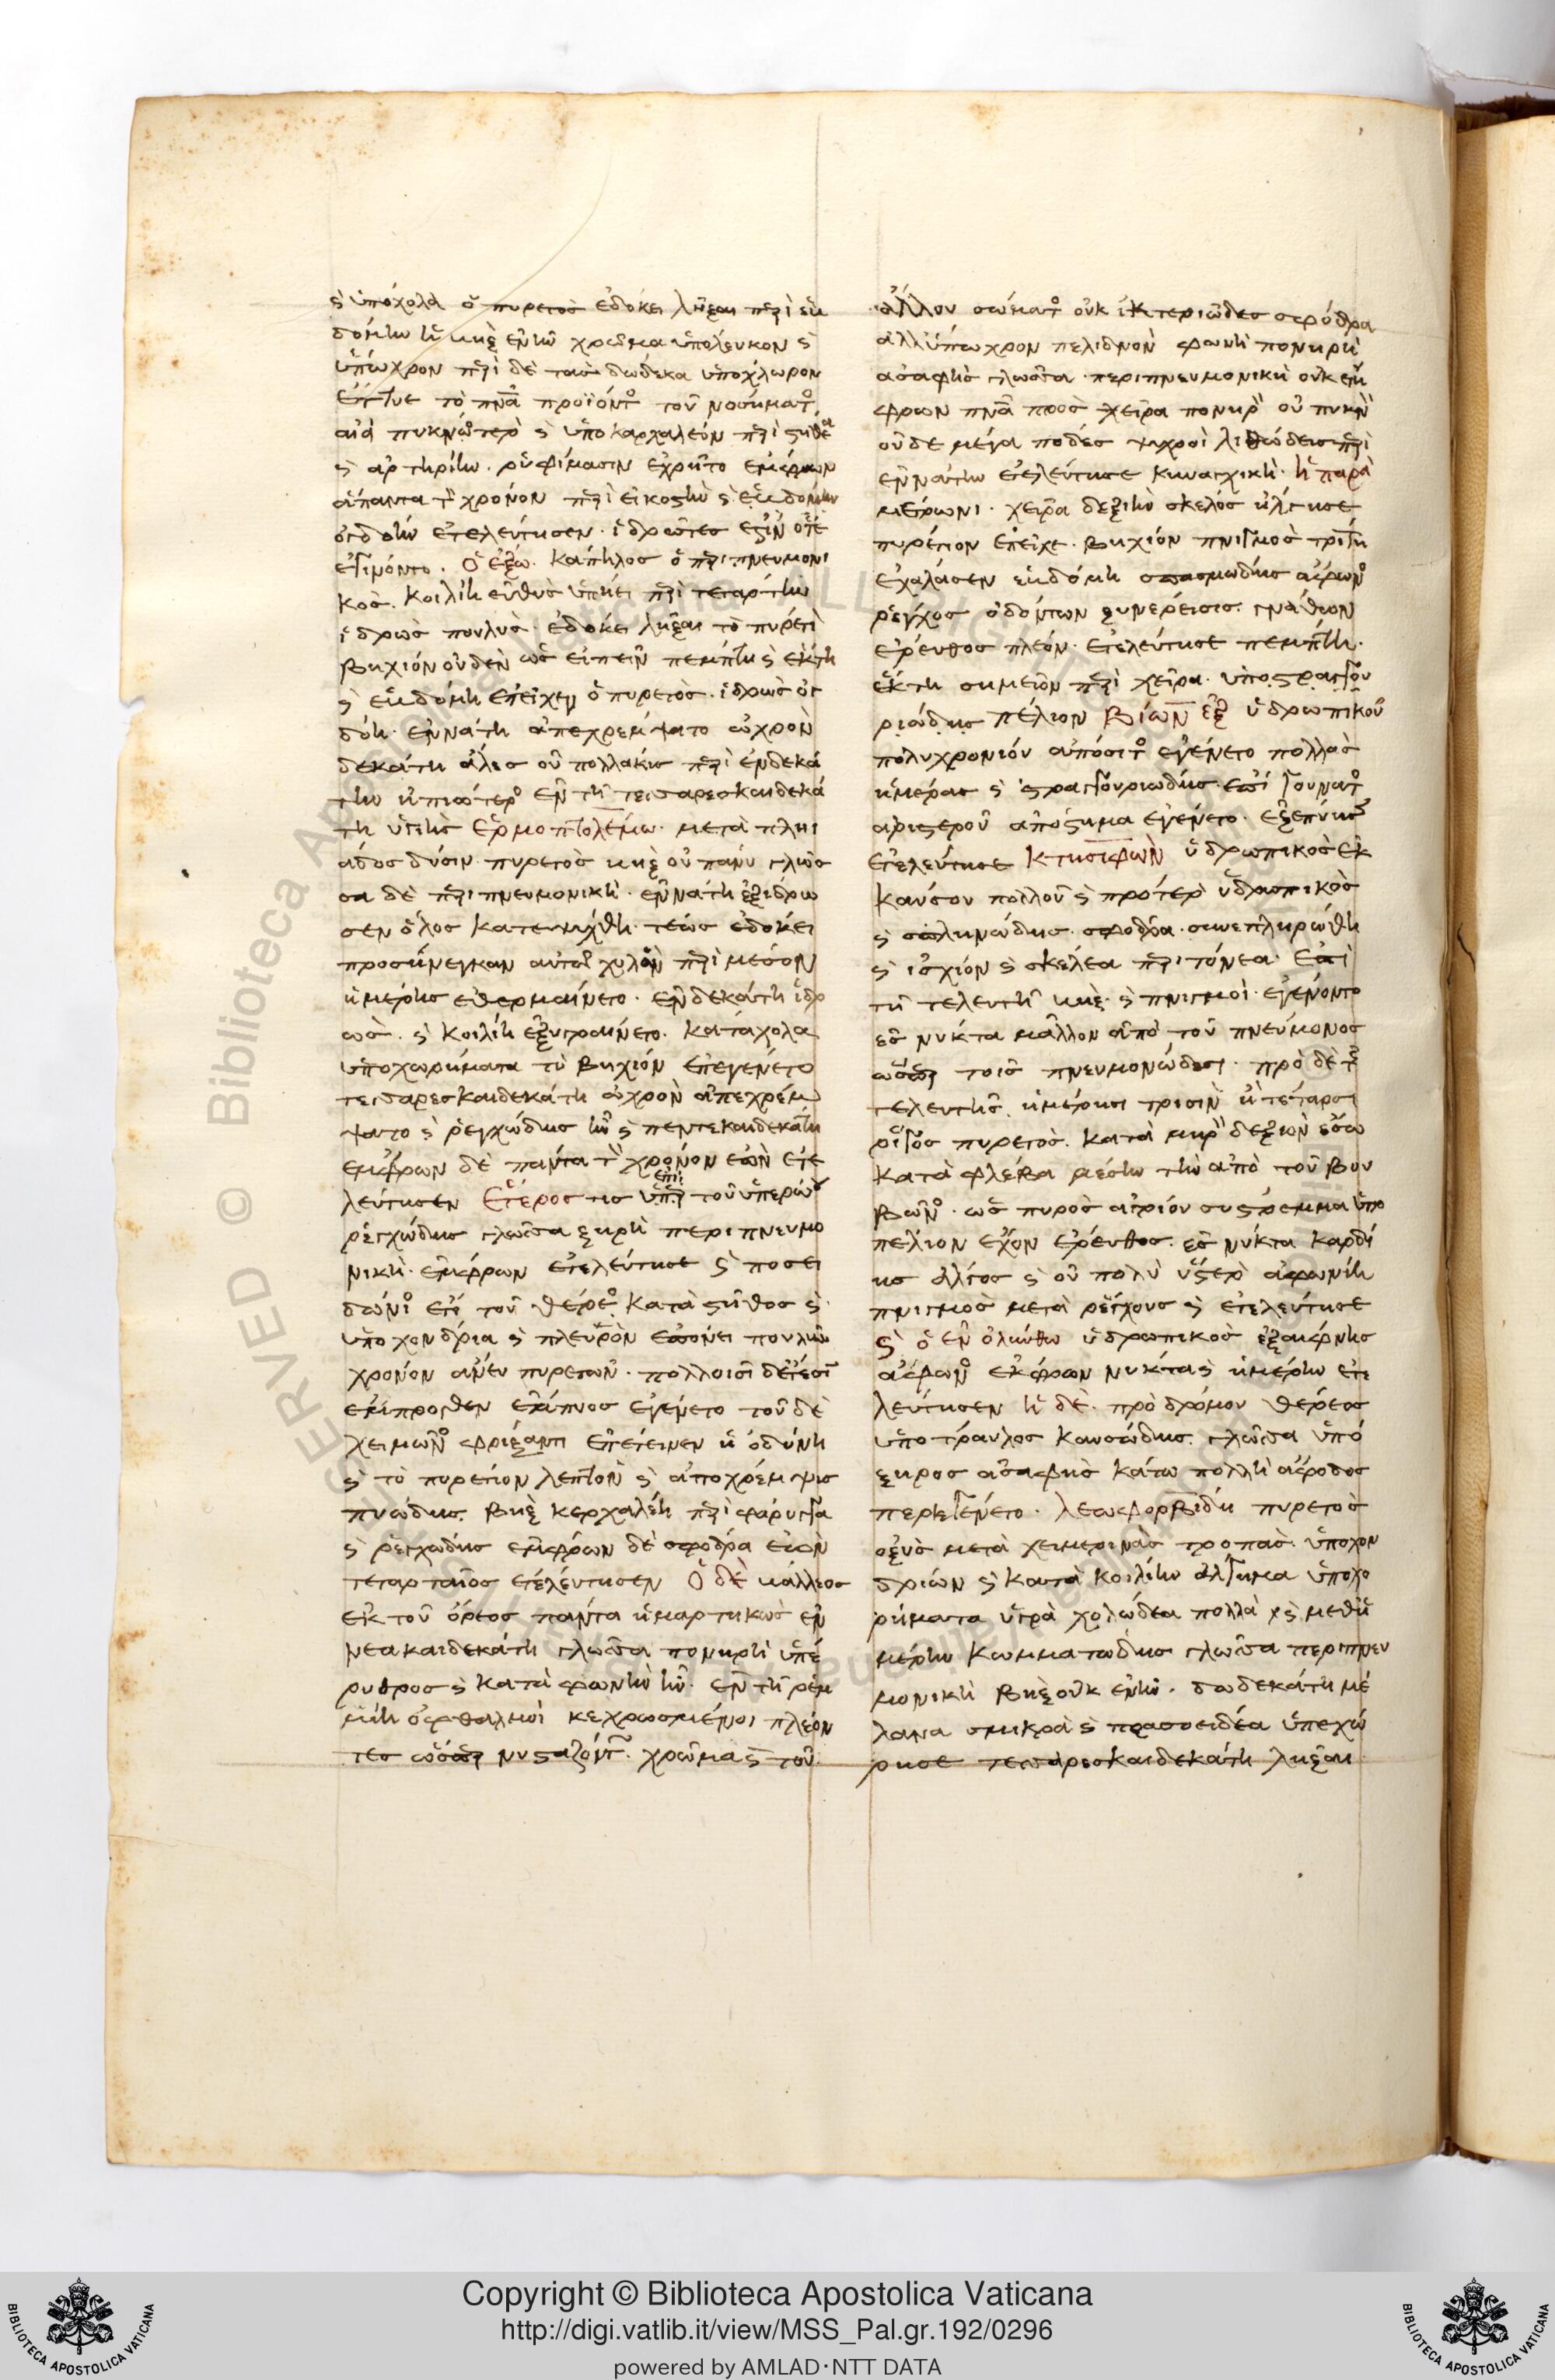 ϛ ὑπόχολα ὁ πυρετος ἐδόκει λῆξαι περὶ ἑβ
δόμην ἢ βηξ ἐνῆν χρῶμα ὑπόλευκον ϛ
ὕπωχρον περὶ δὲ τας δώδεκα ὑπόχλωρον
το πνα προϊόντος τοῦ νοσήματος
αἰεὶ πυκνότερον ϛ ὑποκαρχαλέον περὶ στήθεα
ϛ ἀρτηρίην. ῥυφήμασιν ἐχρῆτο ἔμφρων
ἅπαντα τὸν χρόνον περὶ εἰκοστὴν ϛ ἑβδόμην
ὀγδόην ἐτελεύτησεν. ἱδρῶτες ἔστιν ὅτε
ἐγίνοντο. ὁ ἔξω. κάπηλος ὁ περιπνευμονι
κός. κοιλίη εὐθὺς ὑπῄει περὶ τετάρτην
ἱδρὼς πουλὺς. ἐδόκει λῆξαι τὸ πυρέτιον
βηχίον οὐδὲν ὡς εἰπεῖν πέμπτη ϛ ἕκτη
ϛ ἑβδόμη ἐπεῖχεν ὁ πυρετὸς. ἱδρὼς ὀγ
δόη. ἐννάτη ἀπεχρέμψατο ὠχρὸν
δεκάτη ἅλις οὐ πολλάκις περὶ ἑνδεκά
την ἠπιώτερος ἐν τῇ τεσσαρεσκαιδεκά
τη ὑγιὴς Ἑρμοπτολέμω. μετὰ πλη
άδος δύσιν. πυρετὸς βηξ οὐ πάνυ γλῶσ
σα δὲ περιπνευμονικὴ. ἐννάτη ἐξίδρω
σεν ὅλος κατεψύχθη. τέως ἐδόκει
προσήνεγκαν αὐτῶ χυλὸν περὶ μέσον
ἡμέρης ἐθερμαίνετο. ἑνδεκάτη ἱδρ
ὼς. ϛ κοιλίη ἐξυγραίνετο. κατάχολα
ὑποχωρήματα τὶ βηχίον ἐπεγένετο
τεσσαρεσκαιδεκάτη ὠχρὸν ἀπεχρέμ
ψατο ϛ ῥεγχώδης ἦν ϛ πεντεκαιδεκάτη
ἔμφρων δὲ πάντα τὸν χρόνον ἐὼν ἐτε
λεύτησεν Ἕτερος τις τοῦ ὑπερώου
ῥεγχώδης γλῶσσα ξηρὴ περιπνευμο
νικὴ. ἔμφρων ἐτελεύτησε ϛ ποσει
δώνιος ἐπὶ τοῦ θέρεος κατὰ στῆθος ϛ
ὑποχόνδρια ϛ πλευρὸν ἐπόνει πουλὺν
χρόνον ἄνευ πυρετῶν. πολλοισι δὲ ἔτεσι
ἔμπροσθεν ἔμπυος ἐγένετο τοῦ δὲ
χειμῶνος φρίξαντι ἐπέτεινεν ἡ ὀδύνη
ϛ τὸ πυρέτιον λεπτὸν ϛ ἀπόχρεμψις
πυώδης. βηξ κερχαλέη περὶ φάρυγγα
ϛ ῥεγχώδης ἔμφρων δὲ σφόδρα ἐὼν
τεταρταῖος ἐτελεύτησεν ὁ δὲ μάλλιος
ἐκ τοῦ ὄρεος πάντα ἡμαρτηκὼς ἐν
νεακαιδεκάτη γλῶσσα πονηρὴ ὑπέ
ρυθρος ϛ κατὰ φωνὴν ἦν. ἐν τῆ ῥεμ
μίη ὀφθαλμοὶ κεχρωσμένοι πλέον
τες ὥσπερ νυσταζόντων. χρῶμα ϛ τοῦ
ἄλλου σώματος οὐκ ἰκτεριῶδες σφόδρα
ἀλλ ὕπωχρον πελιδνὸν φωνὴ πονηρὴ
ἀσαφὴς γλῶσσα. περιπνευμονικὴ οὐκ ἔμ
φρων πνα προς χεῖρα πονηρὸν οὐ πυκνὸν
οὐδε μέγα πόδες ψυχροὶ λιθώδεις περὶ
ἐννάτην ἐτελεύτησε κυναγχικὴ. ἡ παρὰ
μέτρωνι. χεῖρα δεξιὴν σκέλος ἤλγησε
πυρέτιον ἐπεῖχε. βηχίον πνιγμὸς τρίτη
ἐχάλασεν ἑβδόμη σπασμώδης ἄφωνος
ῥέγχος ὀδόντων ξυνέρεισις. γνάθων
ἐρευθος πλέον. ἐτελεύτησε πέμπτη.
ἕκτη σημεῖον περὶ χεῖρα. ὑποστραγγου
ριώδης πέλιον Βίων ἐξ ὑδρωπικοῦ
πολυχρονίου ἀπόσιτος ἐγένετο πολλὰς
ἡμέρας ϛ στραγγουριώδης. ἐπὶ γούνατος
ἀριστεροῦ ἀπόστημα ἐγένετο. ἐξεπύησεν
ἐτελεύτησε Κτησιφῶν ὑδρωπικὸς ἐκ
καύσου πολλοῦ ϛ πρότερον ὑδρωπικὸς
ϛ σπληνώδης. σφόδρα. συνεπληρώθη
ϛ ἰσχίον ϛ σκέλεα περιτόνεα. ἐπὶ
τῆ τελευτῆ βηξ. ϛ πνιγμοὶ. ἐγένοντο
ἐς νύκτα μᾶλλον ἀπὸ τοῦ πνεύμονος
ὥσπερ τοις πνευμονώδεσι. πρὸ δὲ τῆς
τελευτῆς. ἡμέρησι τρισὶν ἢ τέταρσι
ῥῖγος πυρετὸς. κατὰ μηρὸν δεξιὸν ἔσω
κατὰ φλέβα μέσην τὴν ἀπὸ τοῦ βου
βῶνος. ὡς πυρὸς ἄγριον συστρεμμα ὑπο
πέλιον ἔχον ἐρευθος. ἐς νύκτα καρδί
ης ἄλγος ϛ οὐ πολὺ ὕστερον ἀφωνίη
πνιγμὸς μετὰ ῥέγχους ϛ ἐτελεύτησε
ϛ ὁ ἐν ὀλύνθω ὑδρωπικὸς ἐξαίφνης
ἄφωνος ἔκφρων νύκτα ϛ ἡμέρην ἐτε
λεύτησεν ἡ δὲ. πρὸ δρόμου θέρεος
ὑπότραυλος καυσώδης. γλῶσσα ὑπό
ξηρος ἀσαφὴς κάτω πολλὴ ἄφοδος
περιεγένετο. λεωφορβίδη πυρετὸς
ὀξὺς μετὰ χειμερινὰς τροπάς. ὑποχον
δρίων ϛ κατὰ κοιλίην ἄλγημα ὑποχω
ρήματα ὑγρὰ χολώδεα πολλὰ ϛ μεθ ἡ
μέρην κωμματώδης γλῶσσα περιπνευ
μονικὴ βηξ οὐκ ἐνῆν. δωδεκάτη μέ
λανα σμικρὰ ϛ πρασοειδέα ὑπεχώ
ρησε τεσσαρεσκαιδεκάτη λῆξαι
Copyright © Biblioteca Apostolica Vaticana
http://digi.vatlib.it/view/MSS_Pal.gr.192/0296
powered by AMLAD·NTT DATA